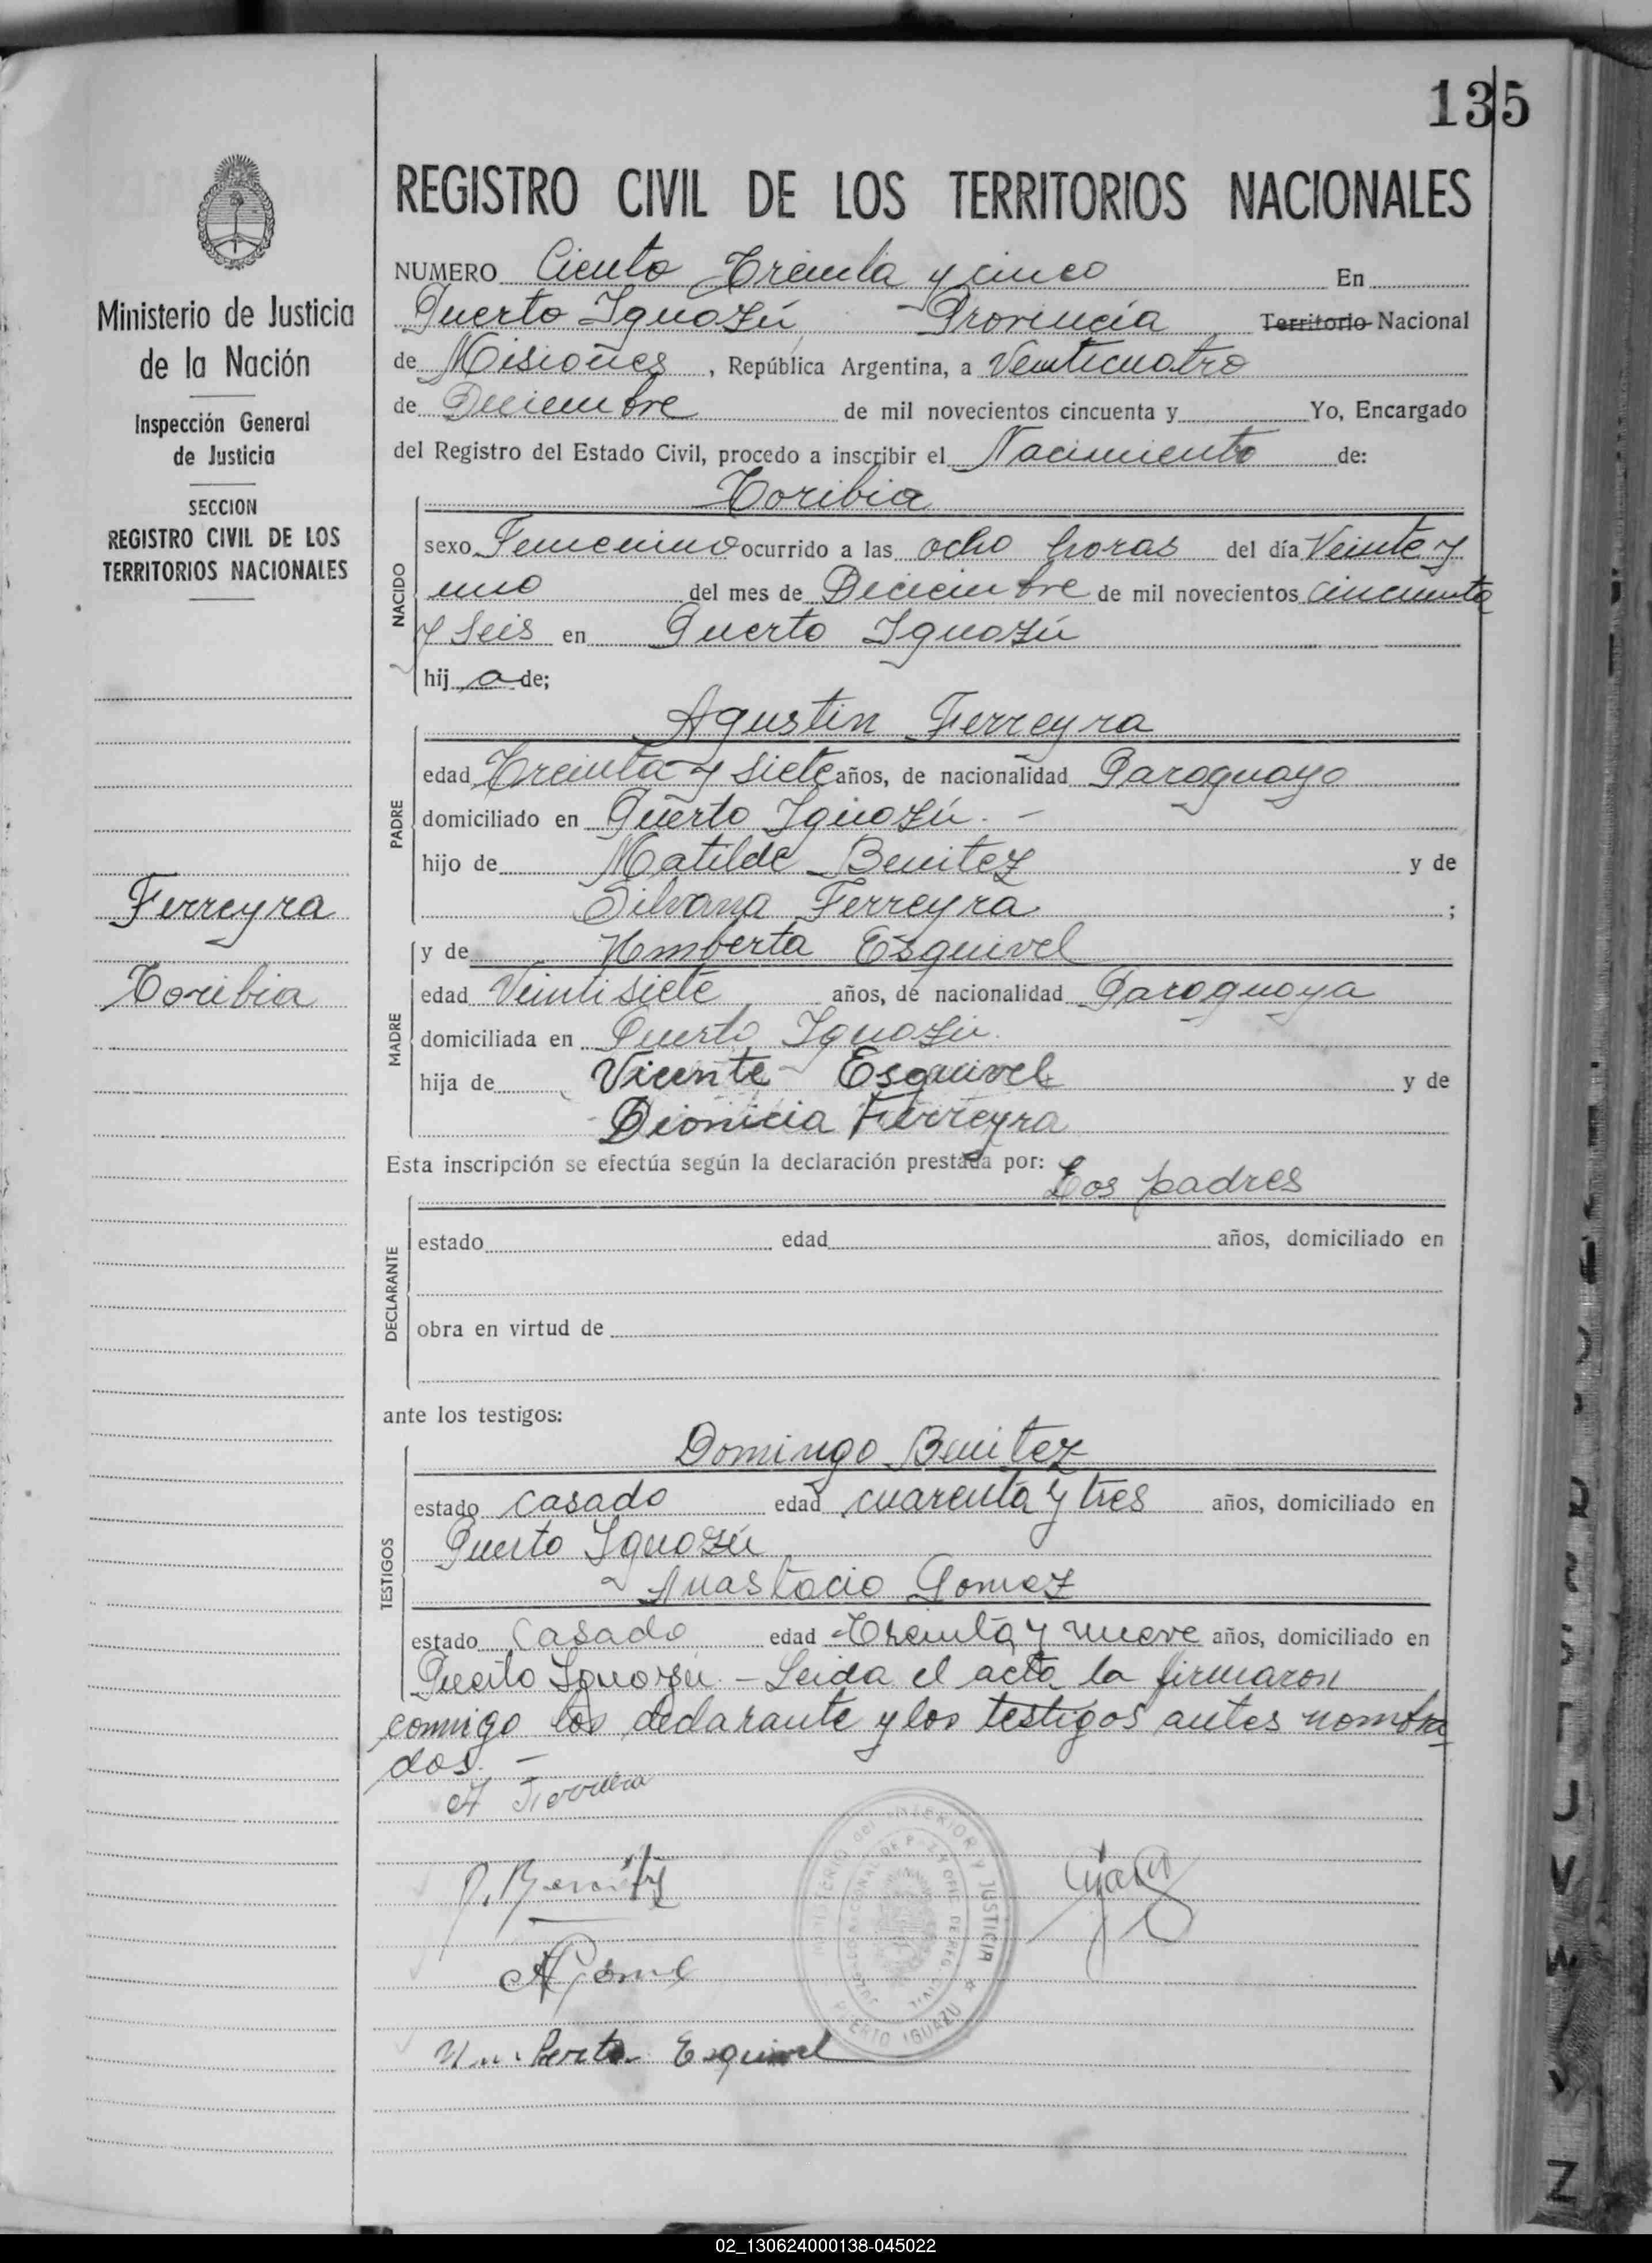 135
REGISTRO CIVIL DE LOS TERRITORIOS NACIONALES
Ministerio de Justicia
de la Nación
Inspección General
de Justicia
SECCION
REGISTRO CIVIL DE LOS
TERRITORIOS NACIONALES
Ferreyra
Toribia
NUMERO Ciento Treinta y cinco En
Puerto Iguazú, Provincia Territorio Nacional
de Misiones, República Argentina, a Veinticuatro
de Diciembre de mil novecientos cincuenta y Yo, Encargado
del Registro del Estado Civil, procedo a inscribir el Nacimiento de:
Toribia
NACIDO
sexo Femenino ocurrido a las ocho horas del día Veinte y
uno del mes de Diciembre de mil novecientos cincuenta
y Seis en Puerto Iguazú
hij a de;
Agustin Ferreyra
PADRE
edad Treinta y siete años, de nacionalidad Paraguayo
domiciliado en Puerto Iguazú. -
hijo de Matilde Benitez y de
Silvana Ferreyra ;
y de Umberta Esquivel
MADRE
edad Veintisiete años, de nacionalidad Paraguaya
domiciliada en Puerto Iguazú.
hija de Vicente Esquivel y de
Dionicia Ferreyra
Esta inscripción se efectúa según la declaración prestada por:
Los padres
DECLARANTE
estado edad años, domiciliado en
obra en virtud de
ante los testigos:
Domingo Benitez
TESTIGOS
estado casado edad cuarenta y tres años, domiciliado en
Puerto Iguazú
Anastacio Gomez
estado Casado edad Treinta y nueve años, domiciliado en
Puerto Iguazú. - Leida el acta la firmaron
conmigo los declarante y los testigos antes nombra
dos. -
A Ferreira
D. Benítez
A Gome
Umberta Esquivel
JUSTICIA
PUERTO IGUAZU
02_130624000138-045022